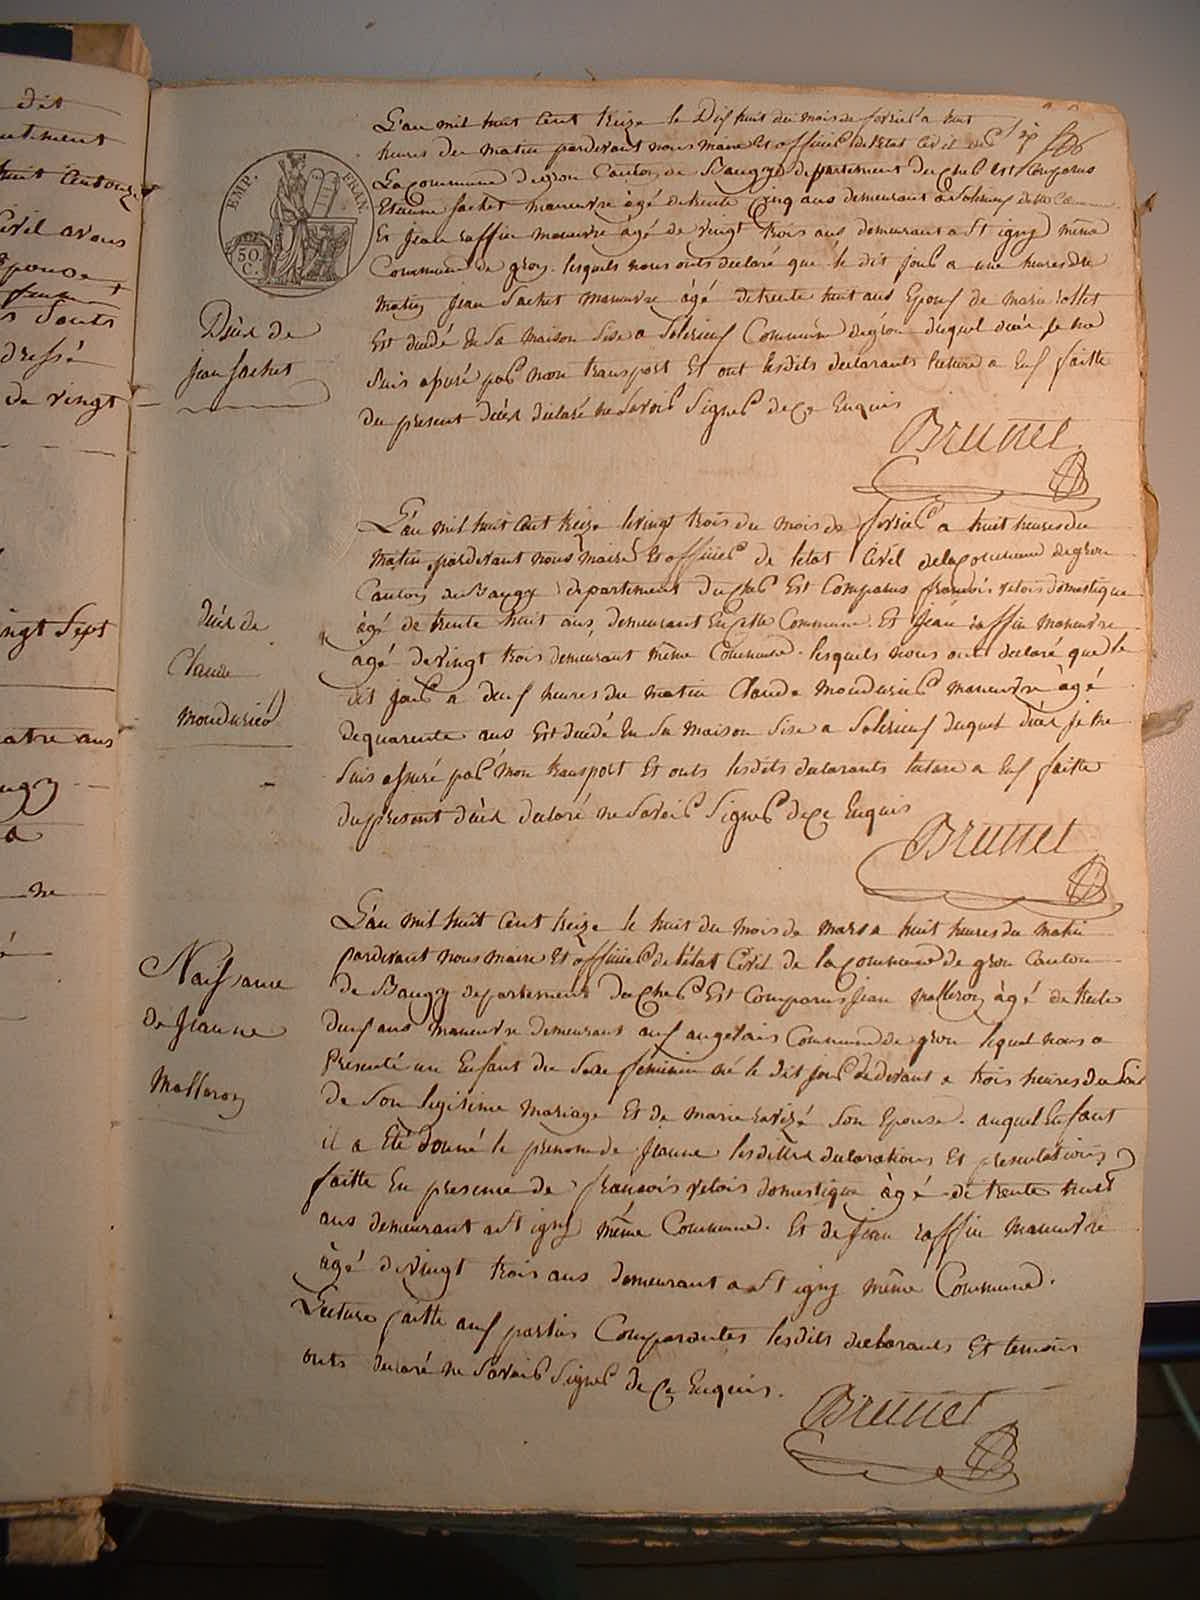 dit
vingt Sept
quatre ans
dressé
de vingt
EMP. FRAN.
50 C.
Décès de
Jean Sachet
L'an mil huit Cent treize le Dix huit du mois de fevrier a huit
heures du matin pardevant nous maire Et officier de l'Etat Civil de
La commune de gron Canton de Baugy departement du cher Est Comparus
Etienne Sachet maneuvre âgé de trente Cinq ans demeurant a Solerieux
Et Jean raffin maneuvre âgé de vingt trois ans demeurant a St igny même
Commune de gron. lesquels nous onts declaré que le dit jour a une heures du
matin Jean Sachet maneuvre âgé de trente huit ans Epoux de marie
Est décédé En Sa maison Sise a Solerieux Commune de gron duquel décès je me
Suis assuré par mon transport Et ont lesdits declarants lecture a Eux faitte
du present décès déclaré ne Savoir Signer de Ce Enquis
Brunet
décès de
Claude
Mondurier
L'an mil huit Cent treize le vingt trois du mois de fevrier a huit heures du
matin pardevant nous maire Et officier de l'etat Civil de la commune de gron
Canton de Baugy departement du cher Est Comparus francois velois domestique
âgé de trente huit ans, demeurant En cette Commune. Et Jean raffin maneuvre
âgé de vingt trois demeurant même Commune. lesquels nous onts declaré que le
dit jour a deux heures du matin Claude Mondurier maneuvre âgé
de quarente ans Est décédé En Sa maison Sise a Solerieux duquel décès je me
Suis assuré par mon transport Et onts lesdits declarants lecture a Eux faitte
du present décès declaré ne Savoir Signer de Ce Enquis
Brunet
Naissance
de Jeanne
Malleron
L'an mil huit Cent treize le huit du mois de mars a huit heures du matin
pardevant nous maire Et officier de l'état Civil de la commune de gron Canton
de Baugy departement du cher Est Comparus Jean Malleron âgé de trente
deux ans maneuvre demeurant aux Commune de gron lequel nous a
Présenté un Enfant du Sexe féminin né le dit jour a trois heures du
de Son legitime mariage Et de Marie Son Epouse. auquel Enfant
il a Eté donné le prenom de Jeanne lesdittes declarations Et presentations
faitte En presence de francois velois domestique âgé de trente huit
ans demeurant a St igny même Commune. Et de Jean raffin maneuvre
âgé de vingt trois ans demeurant a St igny même Commune.
Lecture faitte aux parties Comparantes lesdits declarants Et temoins
onts declaré ne Savoir Signer de Ce Enquis.
Brunet